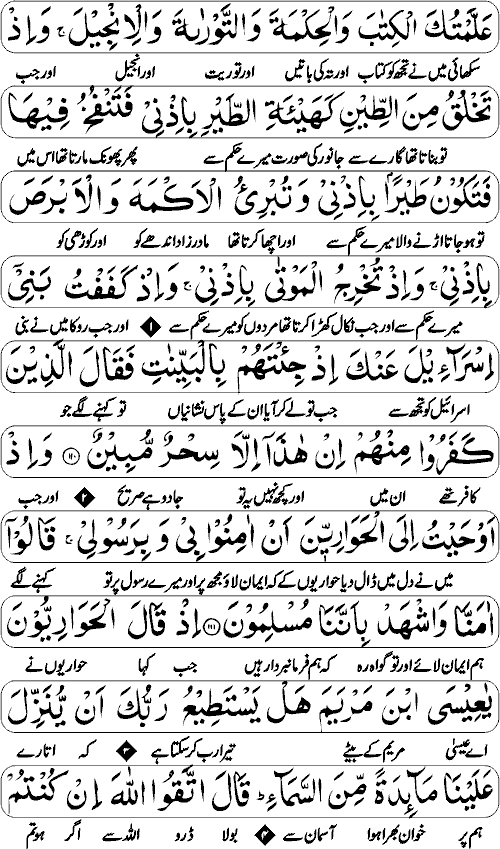 عَلَّمْتُكَ الْكِتٰبَ وَالْحِكْمَةَ وَالتَّوْرٰىةَ وَالْاِنْجِيْلَ ۚ وَاِذْ
سکھائی میں نے تجھ کو کتاب اور تہ کی باتیں اور توریت اور انجیل اور جب
تَخْلُقُ مِنَ الطِّيْنِ كَهَيْئَةِ الطَّيْرِ بِاِذْنِيْ فَتَنْفُخُ فِيْهَا
تو بناتا تھا گارے سے جانور کی صورت میرے حکم سے پھر پھونک مارتا تھا اس میں
فَتَكُوْنُ طَيْرًۢا بِاِذْنِيْ وَتُبْرِئُ الْاَكْمَهَ وَالْاَبْرَصَ
تو ہو جاتا اڑنے والا میرے حکم سے اور اچھا کرتا تھا مادر زاد اندھے کو اور کوڑھی کو
بِاِذْنِيْ ۚ وَاِذْ تُخْرِجُ الْمَوْتٰى بِاِذْنِيْ ۚ وَاِذْ كَفَفْتُ بَنِيْٓ
میرے حکم سے اور جب نکال کھڑا کرتا تھا مردوں کو میرے حکم سے ۱ اور جب روکا میں نے بنی
اِسْرَآءِيْلَ عَنْكَ اِذْ جِئْتَهُمْ بِالْبَيِّنٰتِ فَقَالَ الَّذِيْنَ
اسرائیل کو تجھ سے جب تو لے کر آیا ان کے پاس نشانیاں تو کہنے لگے جو
كَفَرُوْا مِنْهُمْ اِنْ هٰذَآ اِلَّا سِحْرٌ مُّبِيْنٌ ۝۱۱۰ وَاِذْ
کافر تھے ان میں اور کچھ نہیں یہ تو جادو ہے صریح ۲ اور جب
اَوْحَيْتُ اِلَى الْحَوَارِيّٖنَ اَنْ اٰمِنُوْا بِيْ وَبِرَسُوْلِيْ ۚ قَالُوْٓا
میں نے دل میں ڈال دیا حواریوں کے کہ ایمان لاؤ مجھ پر اور میرے رسول پر تو کہنے لگے
اٰمَنَّا وَاشْهَدْ بِاَنَّنَا مُسْلِمُوْنَ ۝۱۱۱ اِذْ قَالَ الْحَوَارِيُّوْنَ
ہم ایمان لائے اور تو گواہ رہ کہ ہم فرمانبردار ہیں جب کہا حواریوں نے
يٰعِيْسَى ابْنَ مَرْيَمَ هَلْ يَسْتَطِيْعُ رَبُّكَ اَنْ يُّنَزِّلَ
اے عیسیٰ مریم کے بیٹے تیرا رب کر سکتا ہے ۳ کہ اتارے
عَلَيْنَا مَآئِدَةً مِّنَ السَّمَآءِ ؕ قَالَ اتَّقُوا اللّٰهَ اِنْ كُنْتُمْ
ہم پر خوان بھرا ہوا آسمان سے ۴ بولا ڈرو اللہ سے اگر ہو تم